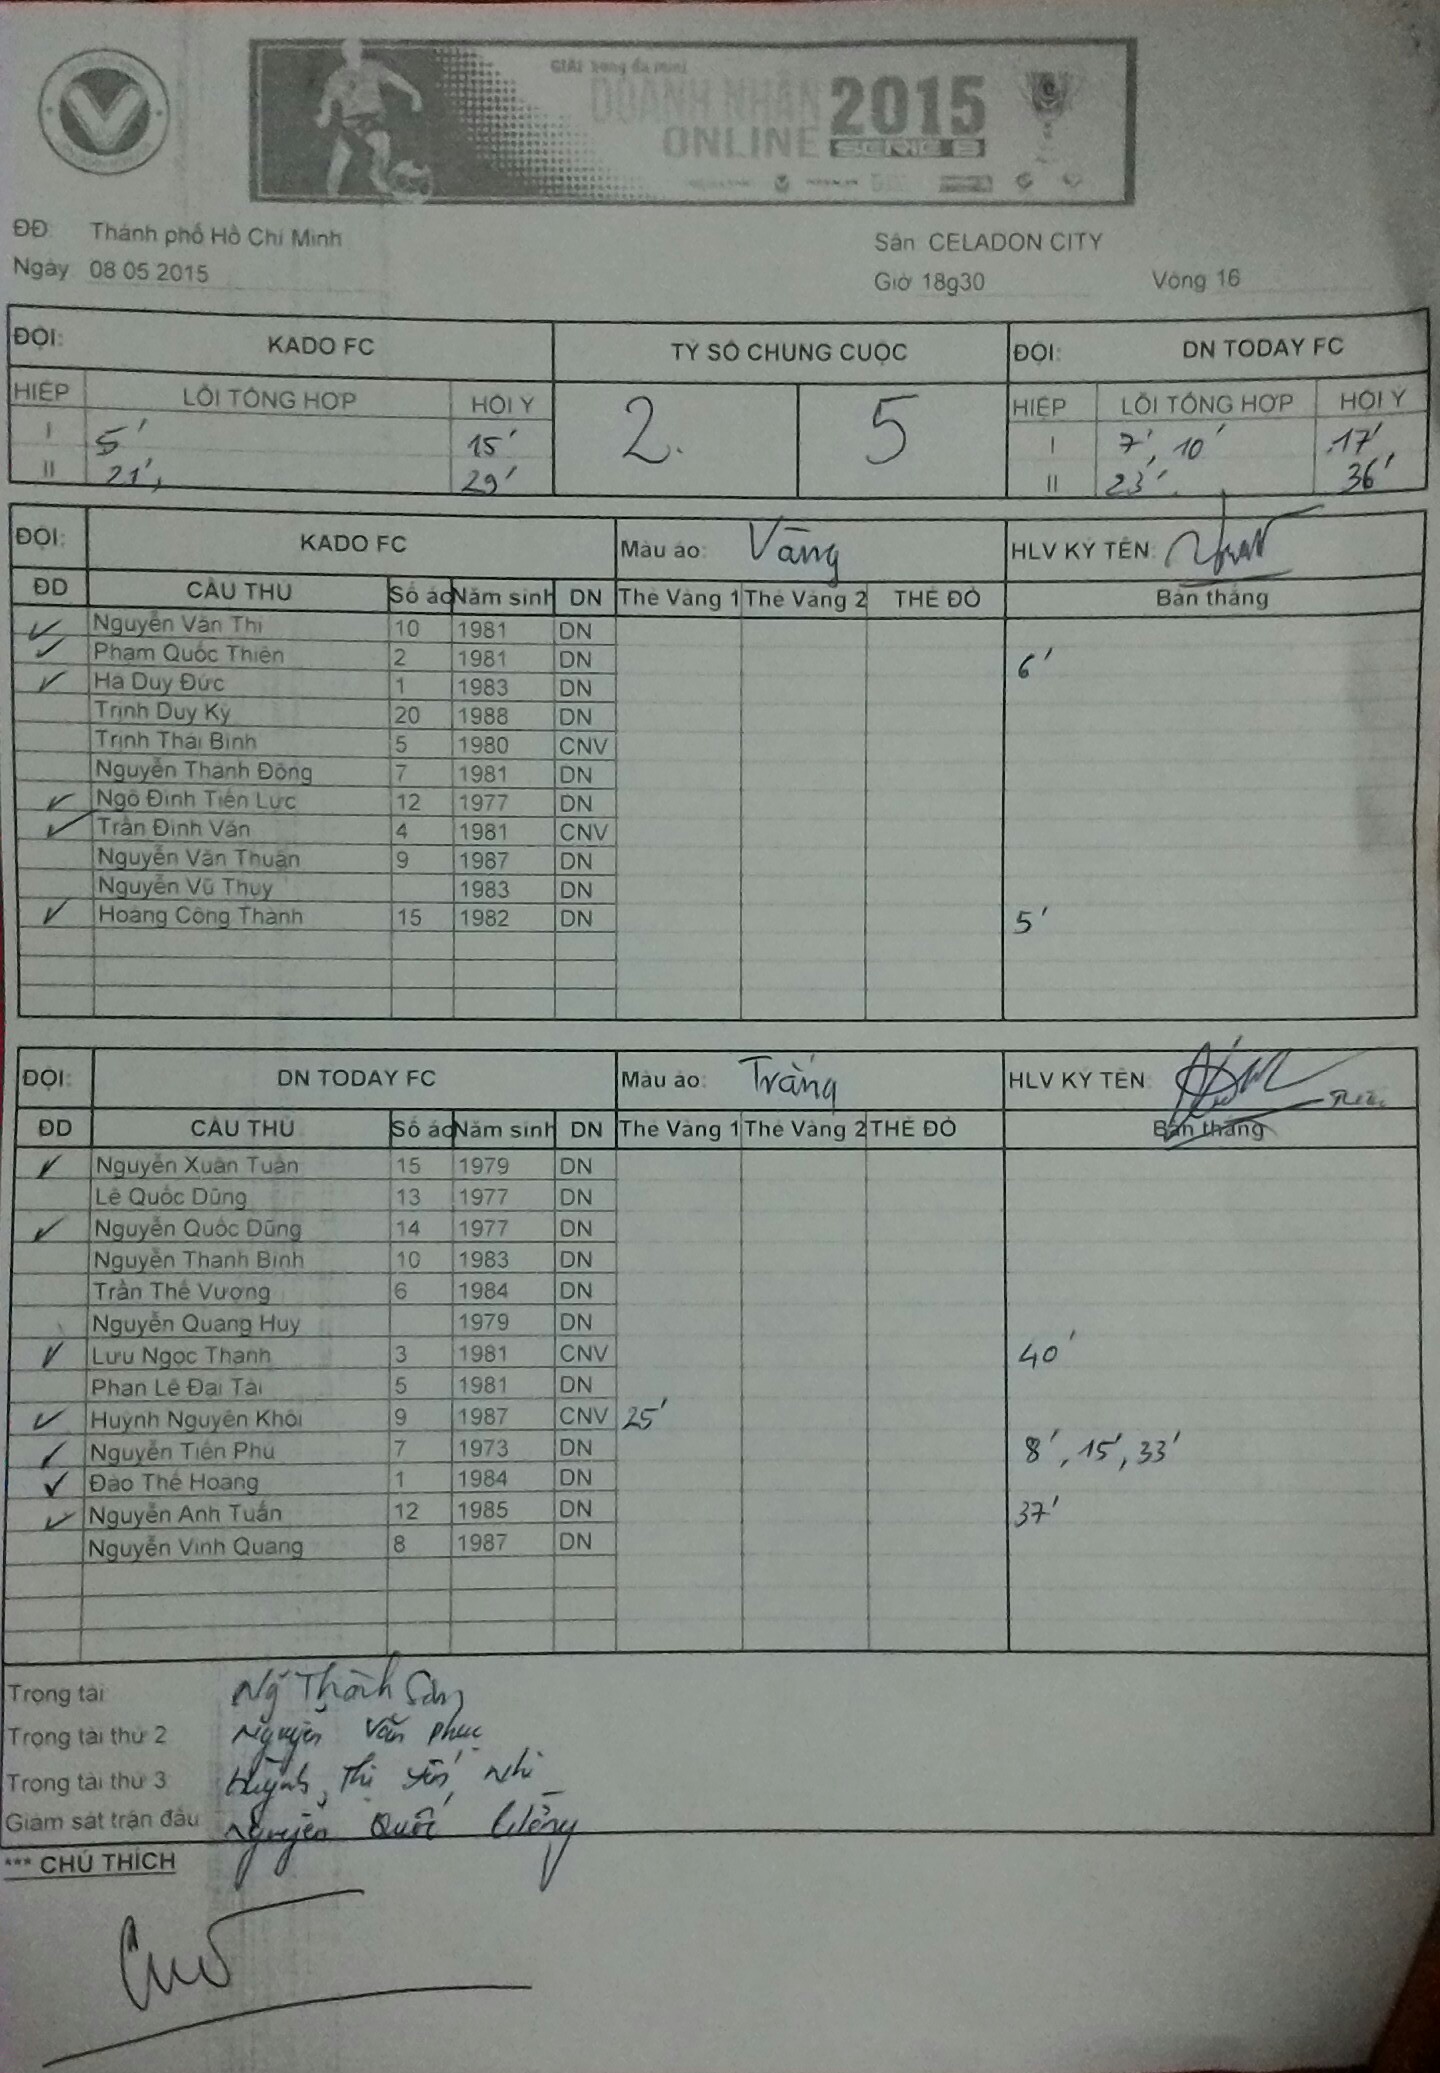 GIẢI bóng đá mini
DOANH NHÂN 2015
ONLINE SERIE B
ĐĐ: Thành phố Hồ Chí Minh
Sân CELADON CITY
Ngày 08 05 2015
Giờ 18g30 Vòng 16
ĐỘI: KADO FC TỶ SỐ CHUNG CUỘC ĐỘI: DN TODAY FC
HIỆP LỖI TỔNG HỢP HỘI Ý 2. 5 HIỆP LỖI TỔNG HỢP HỘI Ý
I 5' 15' I 7', 10' 17'
II 21', 29' II 23'. 36'
ĐỘI: KADO FC Màu áo: Vàng HLV KÝ TÊN:
ĐD CẦU THỦ Số áo Năm sinh DN Thẻ Vàng 1 Thẻ Vàng 2 THẺ ĐỎ Bàn thắng
Nguyễn Văn Thi 10 1981 DN
Phạm Quốc Thiên 2 1981 DN 6'
Hà Duy Đức 1 1983 DN
Trịnh Duy Kỳ 20 1988 DN
Trịnh Thái Bình 5 1980 CNV
Nguyễn Thành Đông 7 1981 DN
Ngô Đình Tiến Lực 12 1977 DN
Trần Đình Văn 4 1981 CNV
Nguyễn Văn Thuận 9 1987 DN
Nguyễn Vũ Thụy 1983 DN
Hoàng Công Thành 15 1982 DN 5'
ĐỘI: DN TODAY FC Màu áo: Trắng HLV KÝ TÊN:
ĐD CẦU THỦ Số áo Năm sinh DN Thẻ Vàng 1 Thẻ Vàng 2 THẺ ĐỎ Bàn thắng
Nguyễn Xuân Tuân 15 1979 DN
Lê Quốc Dũng 13 1977 DN
Nguyễn Quốc Dũng 14 1977 DN
Nguyễn Thanh Bình 10 1983 DN
Trần Thế Vương 6 1984 DN
Nguyễn Quang Huy 1979 DN
Lưu Ngọc Thanh 3 1981 CNV 40'
Phan Lê Đại Tài 5 1981 DN
Huỳnh Nguyên Khôi 9 1987 CNV 25'
Nguyễn Tiến Phú 7 1973 DN 8', 15', 33'
Đào Thế Hoàng 1 1984 DN
Nguyễn Anh Tuấn 12 1985 DN 37'
Nguyễn Vinh Quang 8 1987 DN
Trọng tài Ng Thành
Trọng tài thứ 2 Nguyễn Văn Phúc
Trọng tài thứ 3 Huỳnh Thị Yến Nhi
Giám sát trận đấu Nguyễn Quốc
*** CHÚ THÍCH